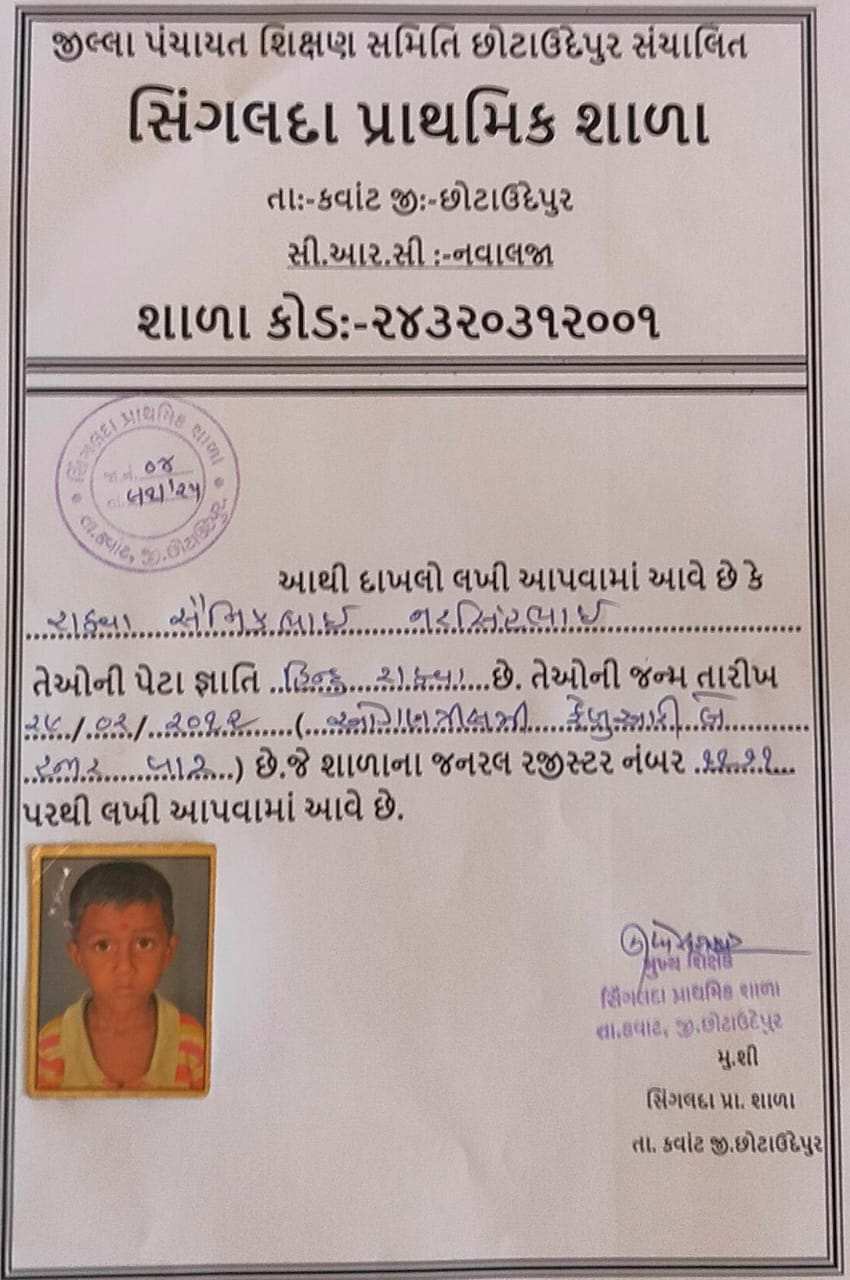 જીલ્લા પંચાયત શિક્ષણ સમિતિ છોટાઉદેપુર સંચાલિત
સિંગલદા પ્રાથમિક શાળા
તા:-કવાંટ જી:-છોટાઉદેપુર
સી.આર.સી :-નવાલજા
શાળા કોડ:-૨૪૩૨૦૩૧૨૦૦૧
સિંગલદા પ્રાથમિક શાળા
જા.નં. ૦૪
તા.કવાંટ, જી.છોટાઉદેપુર
આથી દાખલો લખી આપવામાં આવે છે કે
રાઠવા
તેઓની પેટા જ્ઞાતિ હિન્દુ રાઠવા છે. તેઓની જન્મ તારીખ
/૦૨/ ૨૦૧૨ (
હજાર બાર) છે.જે શાળાના જનરલ રજીસ્ટર નંબર ૧૧૨૧
પરથી લખી આપવામાં આવે છે.
મુખ્ય શિક્ષક
સિંગલદા પ્રાથમિક શાળા
તા.કવાંટ, જી.છોટાઉદેપુર
મુ.શી
સિંગલદા પ્રા. શાળા
તા. કવાંટ જી.છોટાઉદેપુર